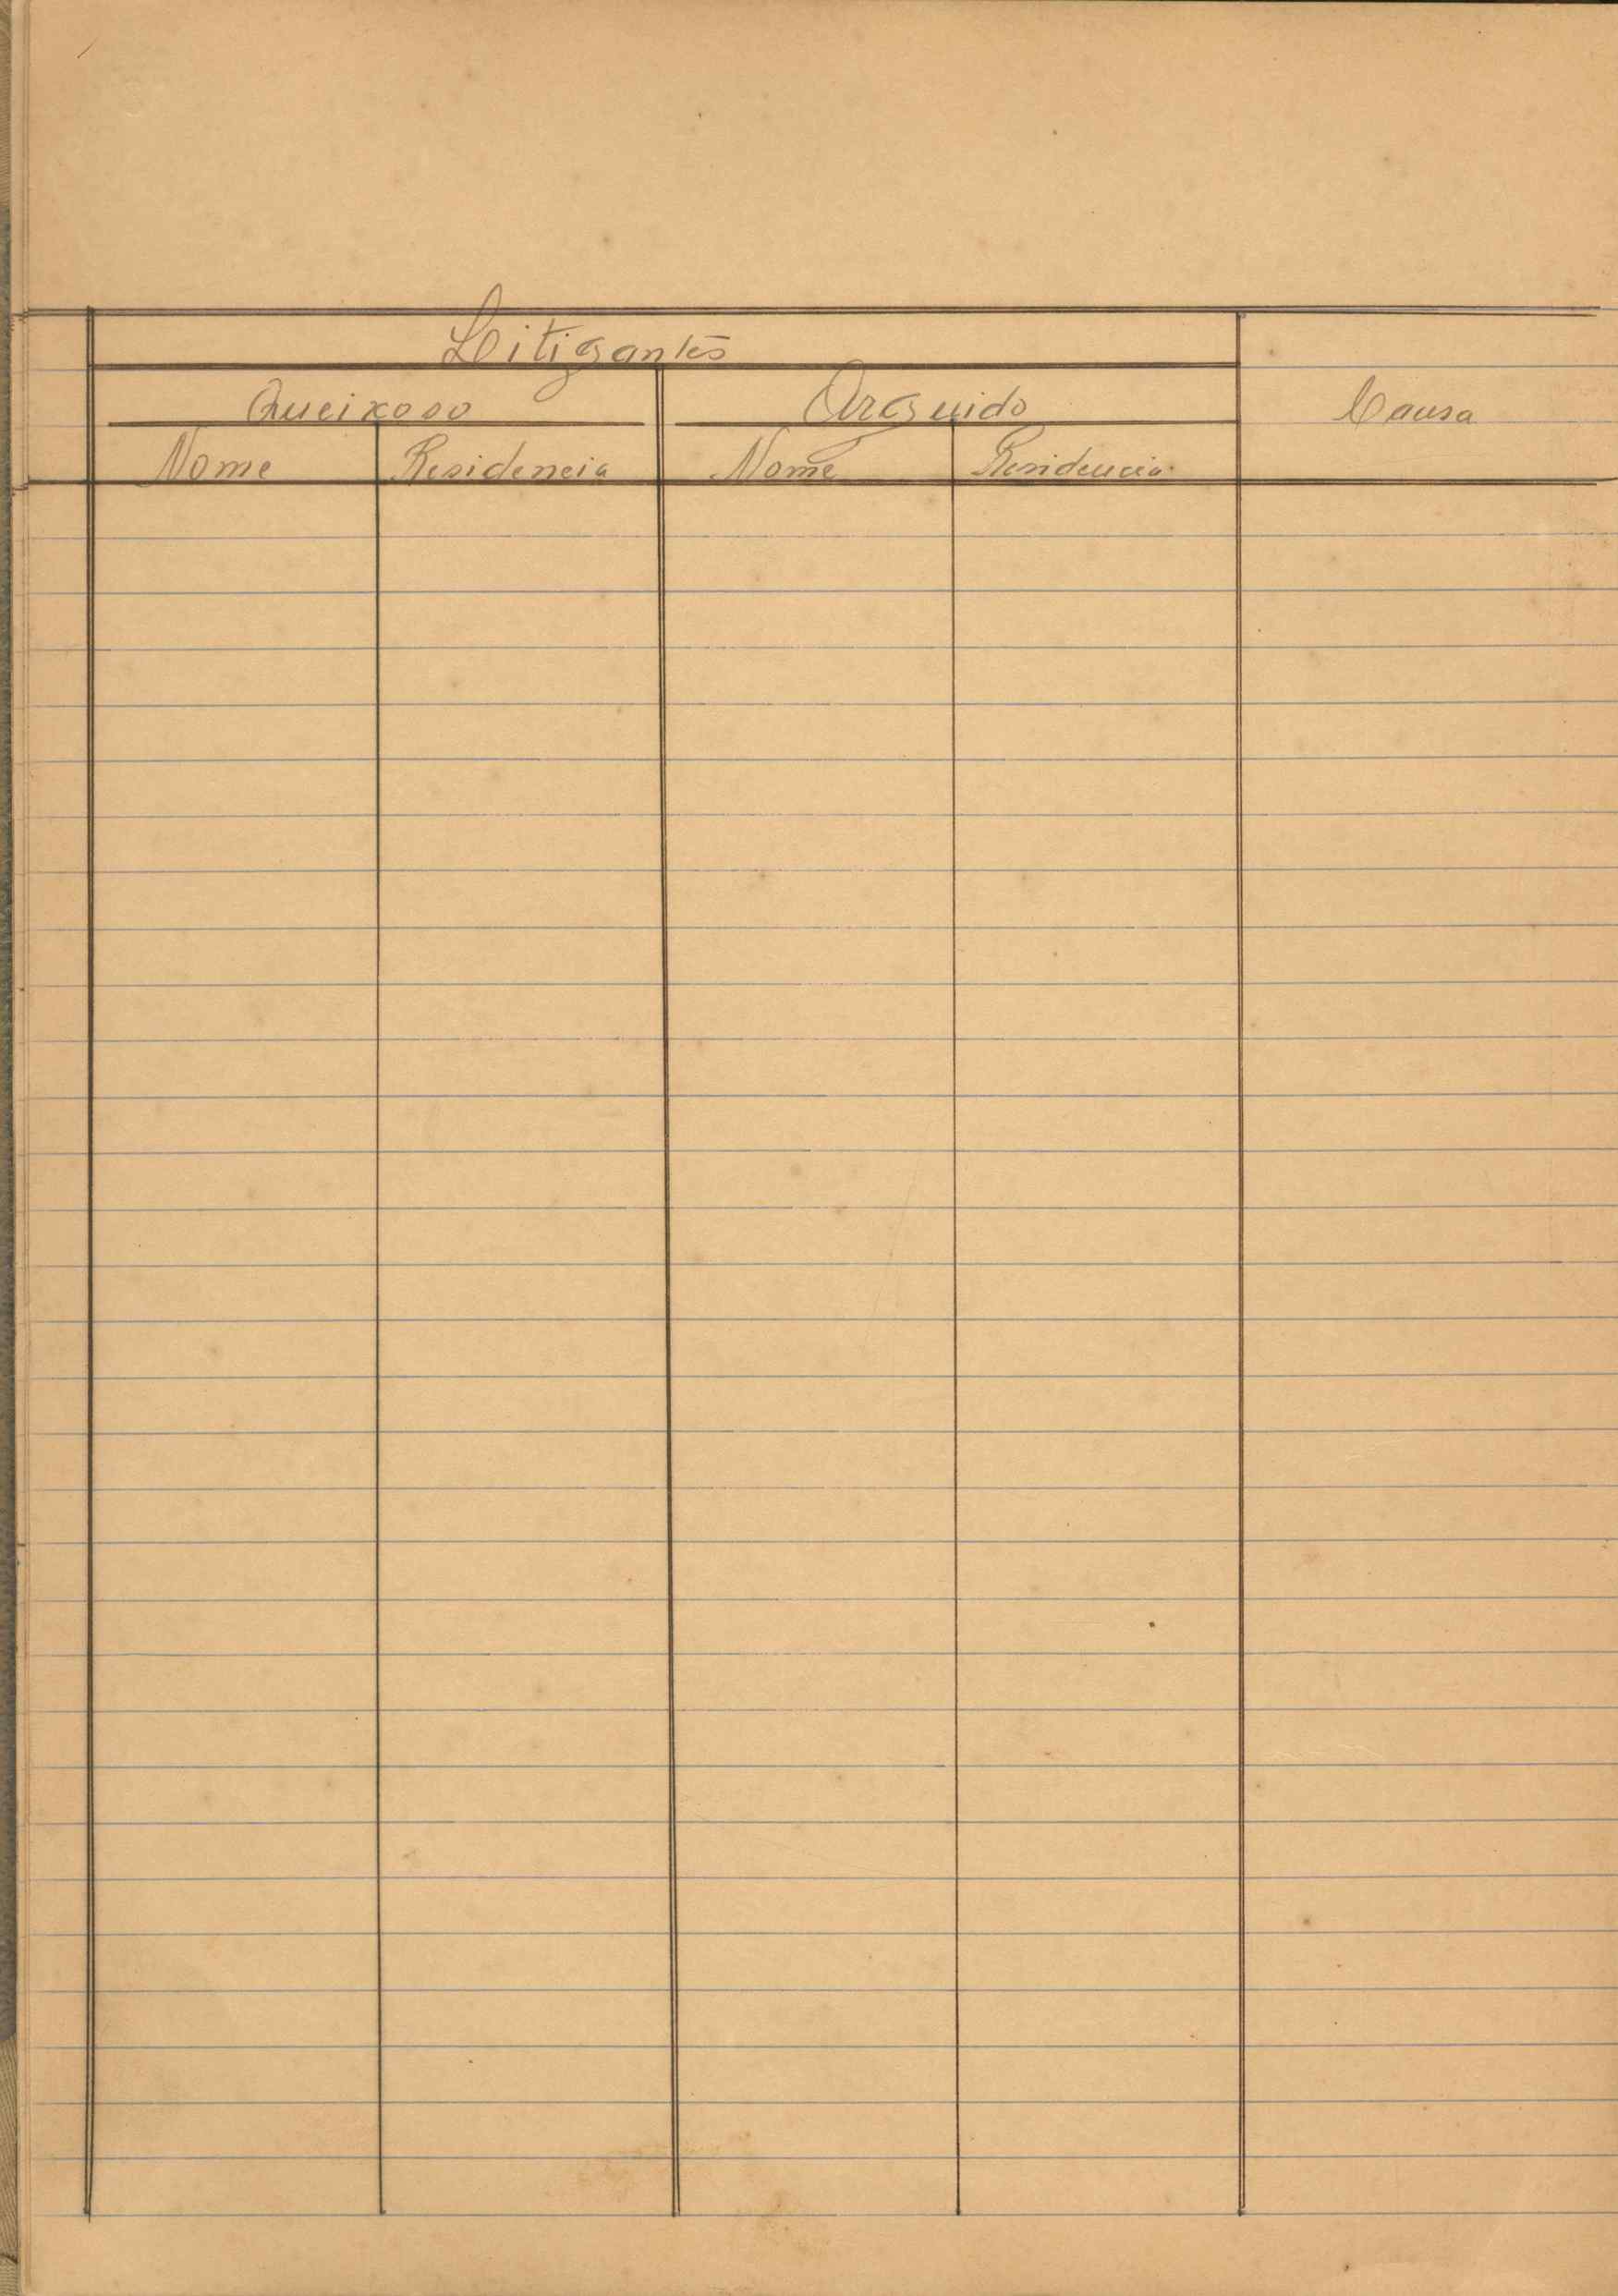 Litigantes
Queixoso Arguido Causa
Nome Residencia Nome Residencia